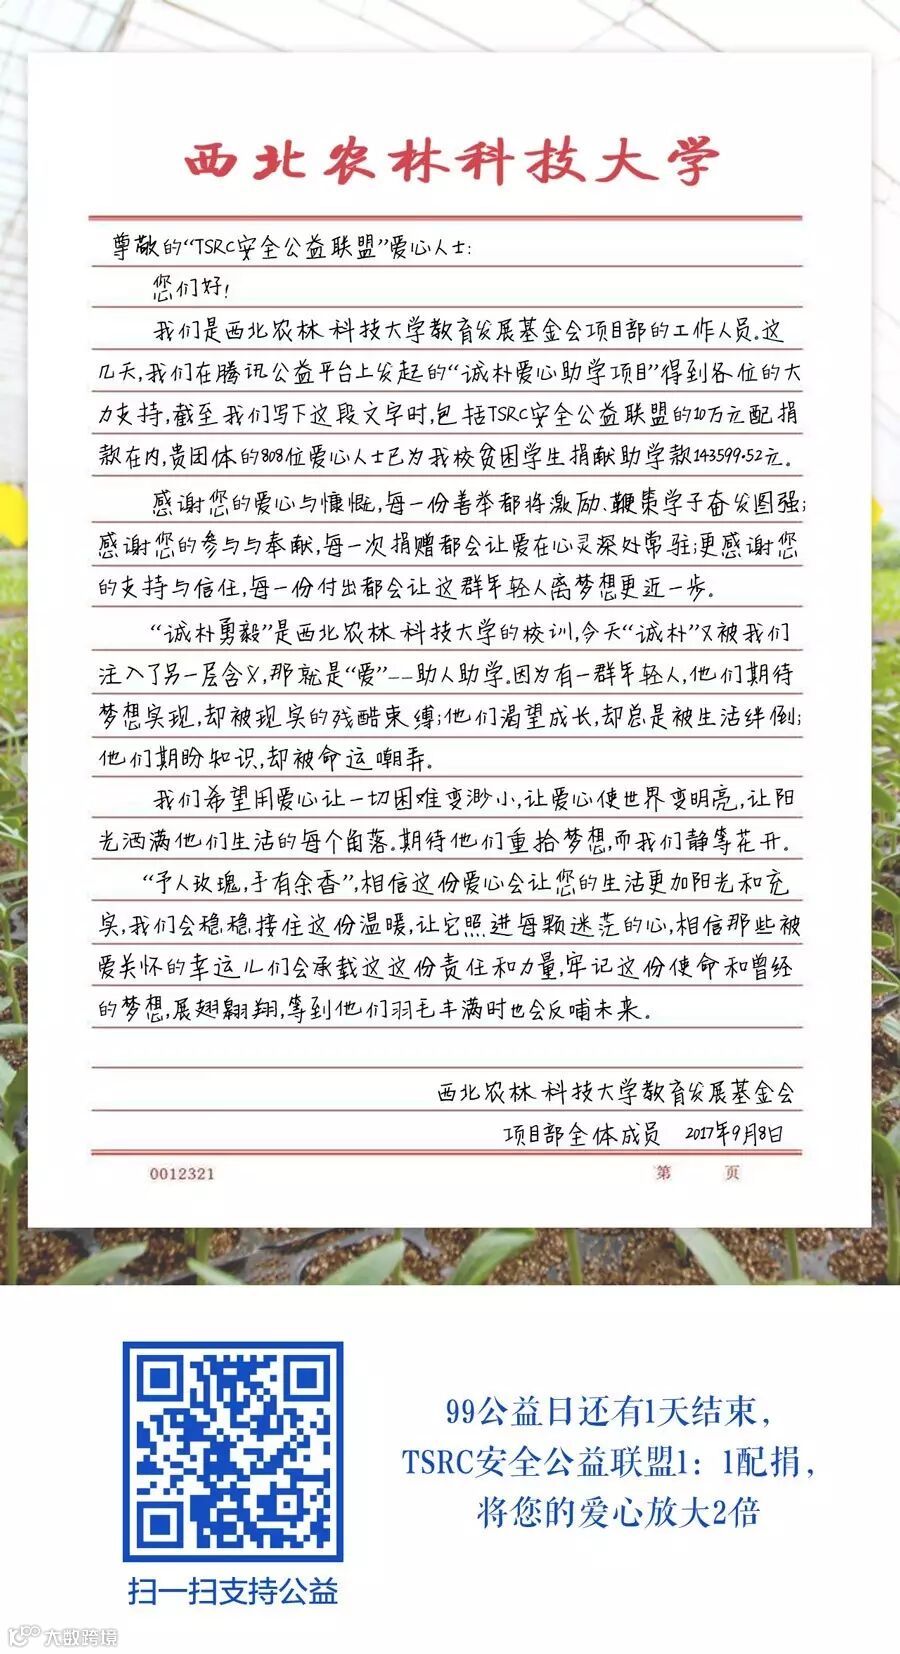 西北农林科技大学
尊敬的“TSRC安全公益联盟”爱心人士:
您们好!
我们是西北农林科技大学教育发展基金会项目部的工作人员。这
几天,我们在腾讯公益平台上发起的“诚朴爱心助学项目”得到各位的大
力支持,截至我们写下这段文字时,包括TSRC安全公益联盟的10万元配捐
款在内,贵团体的808位爱心人士已为我校贫困学生捐献助学款143599.52元。
感谢您的爱心与慷慨,每一份善举都将激励、鞭策学子奋发图强;
感谢您的参与与奉献,每一次捐赠都会让爱在心灵深处常驻;更感谢您
的支持与信任,每一份付出都会让这群年轻人离梦想更近一步。
“诚朴勇毅”是西北农林科技大学的校训,今天“诚朴”又被我们
注入了另一层含义,那就是“爱”——助人助学。因为有一群年轻人,他们期待
梦想实现,却被现实的残酷束缚;他们渴望成长,却总是被生活绊倒;
他们期盼知识,却被命运嘲弄。
我们希望用爱心让一切困难变渺小,让爱心使世界变明亮,让阳
光洒满他们生活的每个角落。期待他们重拾梦想,而我们静等花开。
“予人玫瑰,手有余香”,相信这份爱心会让您的生活更加阳光和充
实,我们会稳稳接住这份温暖,让它照进每颗迷茫的心,相信那些被
爱关怀的幸运儿们会承载这这份责任和力量,牢记这份使命和曾经
的梦想,展翅翱翔,等到他们羽毛丰满时也会反哺未来。
西北农林科技大学教育发展基金会
项目部全体成员 2017年9月8日
0012321 第 页
99公益日还有1天结束,
TSRC安全公益联盟1:1配捐,
将您的爱心放大2倍
扫一扫支持公益
大数跨境